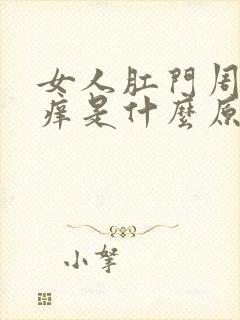 女人肛門周
痒是什麼原
小拏